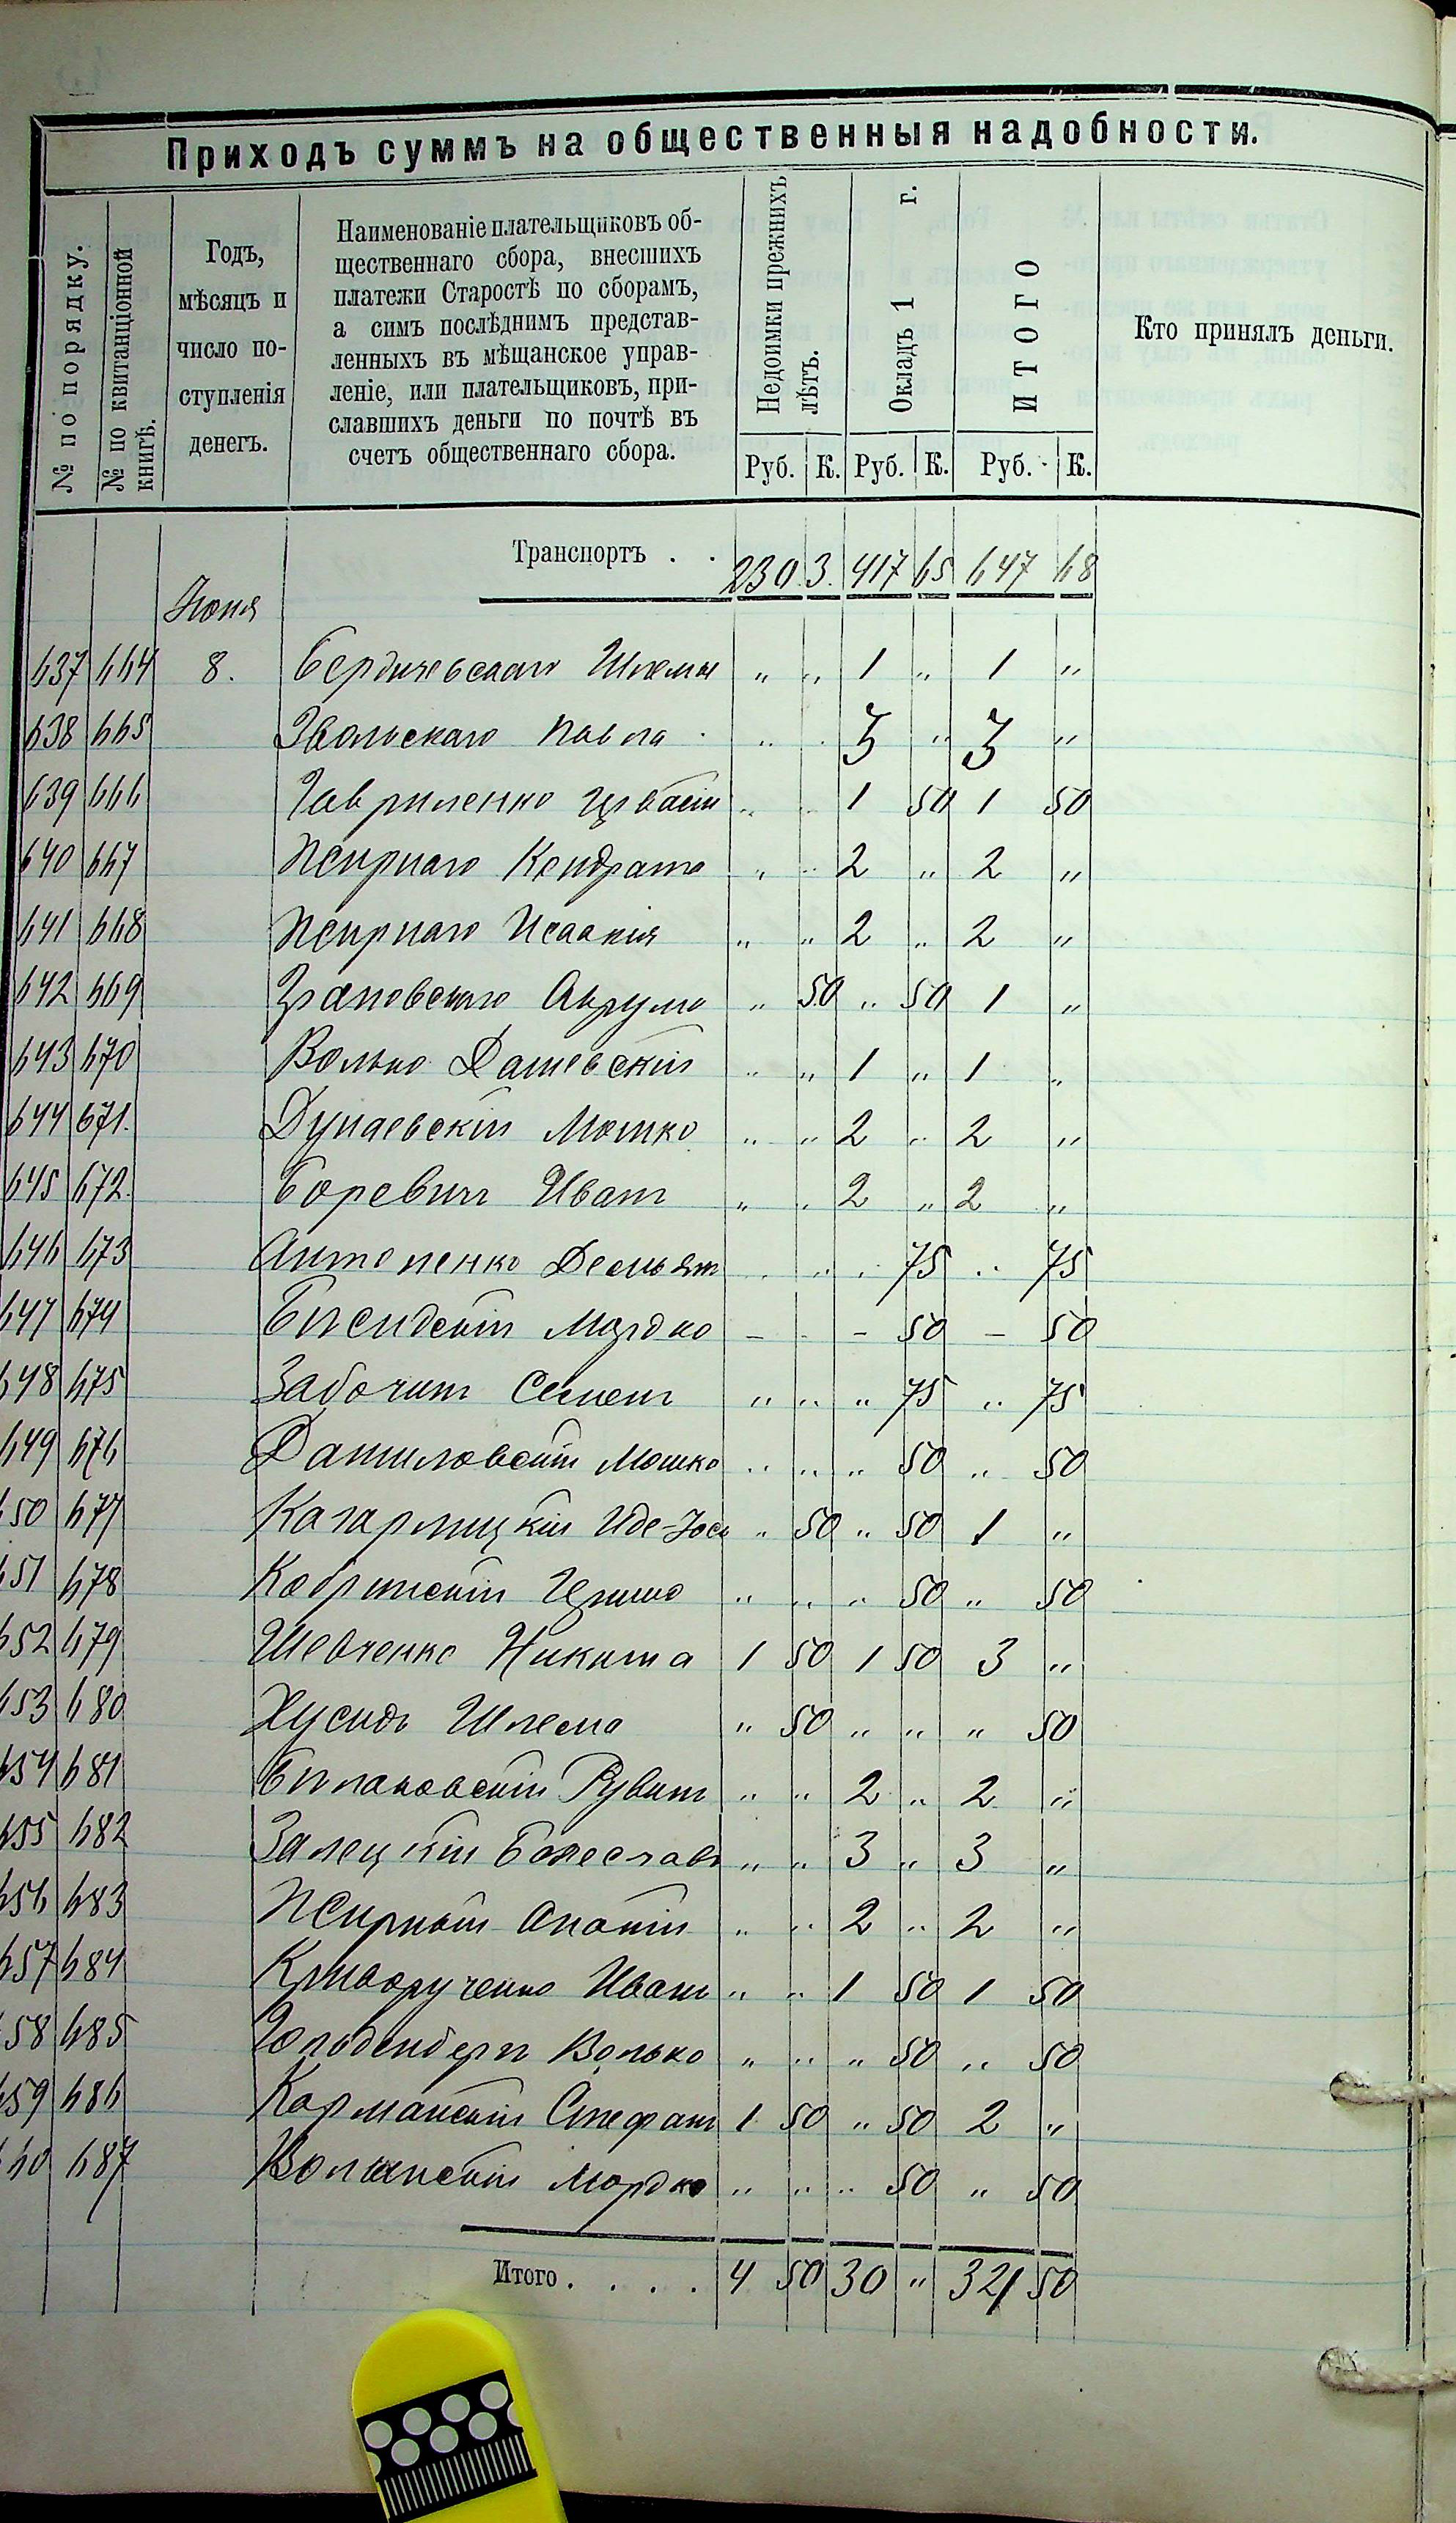 Приходъ суммъ на общественныя надобности.
№ по порядку.
№ по квитанціонной книгѣ.
Годъ, мѣсяцъ и число поступленія денегъ.
Наименованіе плательщиковъ об-
щественнаго сбора, внесшихъ
платежи Старостѣ по сборамъ,
а симъ послѣднимъ представ-
ленныхъ въ мѣщанское управ-
леніе, или плательщиковъ, при-
славшихъ деньги по почтѣ въ
счетъ общественнаго сбора.
Недоимки прежнихъ лѣтъ.
Окладъ 1 г.
ИТОГО
Кто принялъ деньги.
Руб. К. Руб. К. Руб. К.
Транспортъ . . 230 3 417 65 647 68
Іюня
637 664 8. Бердичевскаго Шлемы " " 1 " 1 "
638 665 Звольскаго Павла " 3 " 3 "
639 666 Гавриленко " 1 50 1 50
640 667 Псирнаго Кондрата " " 2 " 2 "
641 668 Псирнаго Исаакія " " 2 " 2 "
642 669 " 50 " 50 1 "
643 670 Волько Дашевскій " " 1 " 1 "
644 671. Дунаевскій Мошко " " 2 " 2 "
645 672. Боревичъ Иванъ " " 2 " 2 "
646 673 Антоненко Демьянъ " " " 75 " 75
647 674 Мордко – - – 50 – 50
648 675 Семенъ " " " 75 " 75
649 676 Даниловскій Мошко " " " 50 " 50
650 677 Кагарлицкій Иде-Іось " 50 " 50 1 "
651 678 Кобринскій " " " 50 " 50
652 679 Шевченко Никита 1 50 1 50 3 "
653 680 Хусидъ Шлема " 50 " " " 50
654 681 Рувинъ " " 2 " 2 "
655 682 Залецкій Болеславъ " " 3 " 3 "
656 683 Псирный Ананій " " 2 " 2 "
657 684 Криворученко Иванъ " " 1 50 1 50
658 685 Гольденбергъ Волько " " " 50 " 50
659 686 Карманскій Стефанъ 1 50 " 50 2 "
660 687 Волынскій Мордко " " " 50 " 50
Итого. . . . 4 50 30 " 34 50